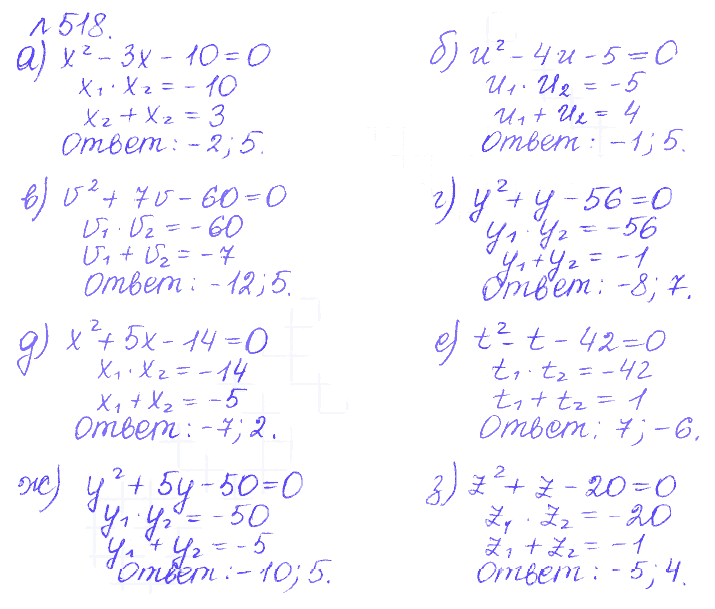 № 518.
а) x² - 3x - 10 = 0
x₁ · x₂ = -10
x₂ + x₂ = 3
Ответ: -2; 5.
б) u² - 4u - 5 = 0
u₁ · u₂ = -5
u₁ + u₂ = 4
Ответ: -1; 5.
в) v² + 7v - 60 = 0
v₁ · v₂ = -60
v₁ + v₂ = -7
Ответ: -12; 5.
г) y² + y - 56 = 0
y₁ · y₂ = -56
y₁ + y₂ = -1
Ответ: -8; 7.
д) x² + 5x - 14 = 0
x₁ · x₂ = -14
x₁ + x₂ = -5
Ответ: -7; 2.
е) t² - t - 42 = 0
t₁ · t₂ = -42
t₁ + t₂ = 1
Ответ: 7; -6.
ж) y² + 5y - 50 = 0
y₁ · y₂ = -50
y₁ + y₂ = -5
Ответ: -10; 5.
з) z² + z - 20 = 0
z₁ · z₂ = -20
z₁ + z₂ = -1
Ответ: -5; 4.